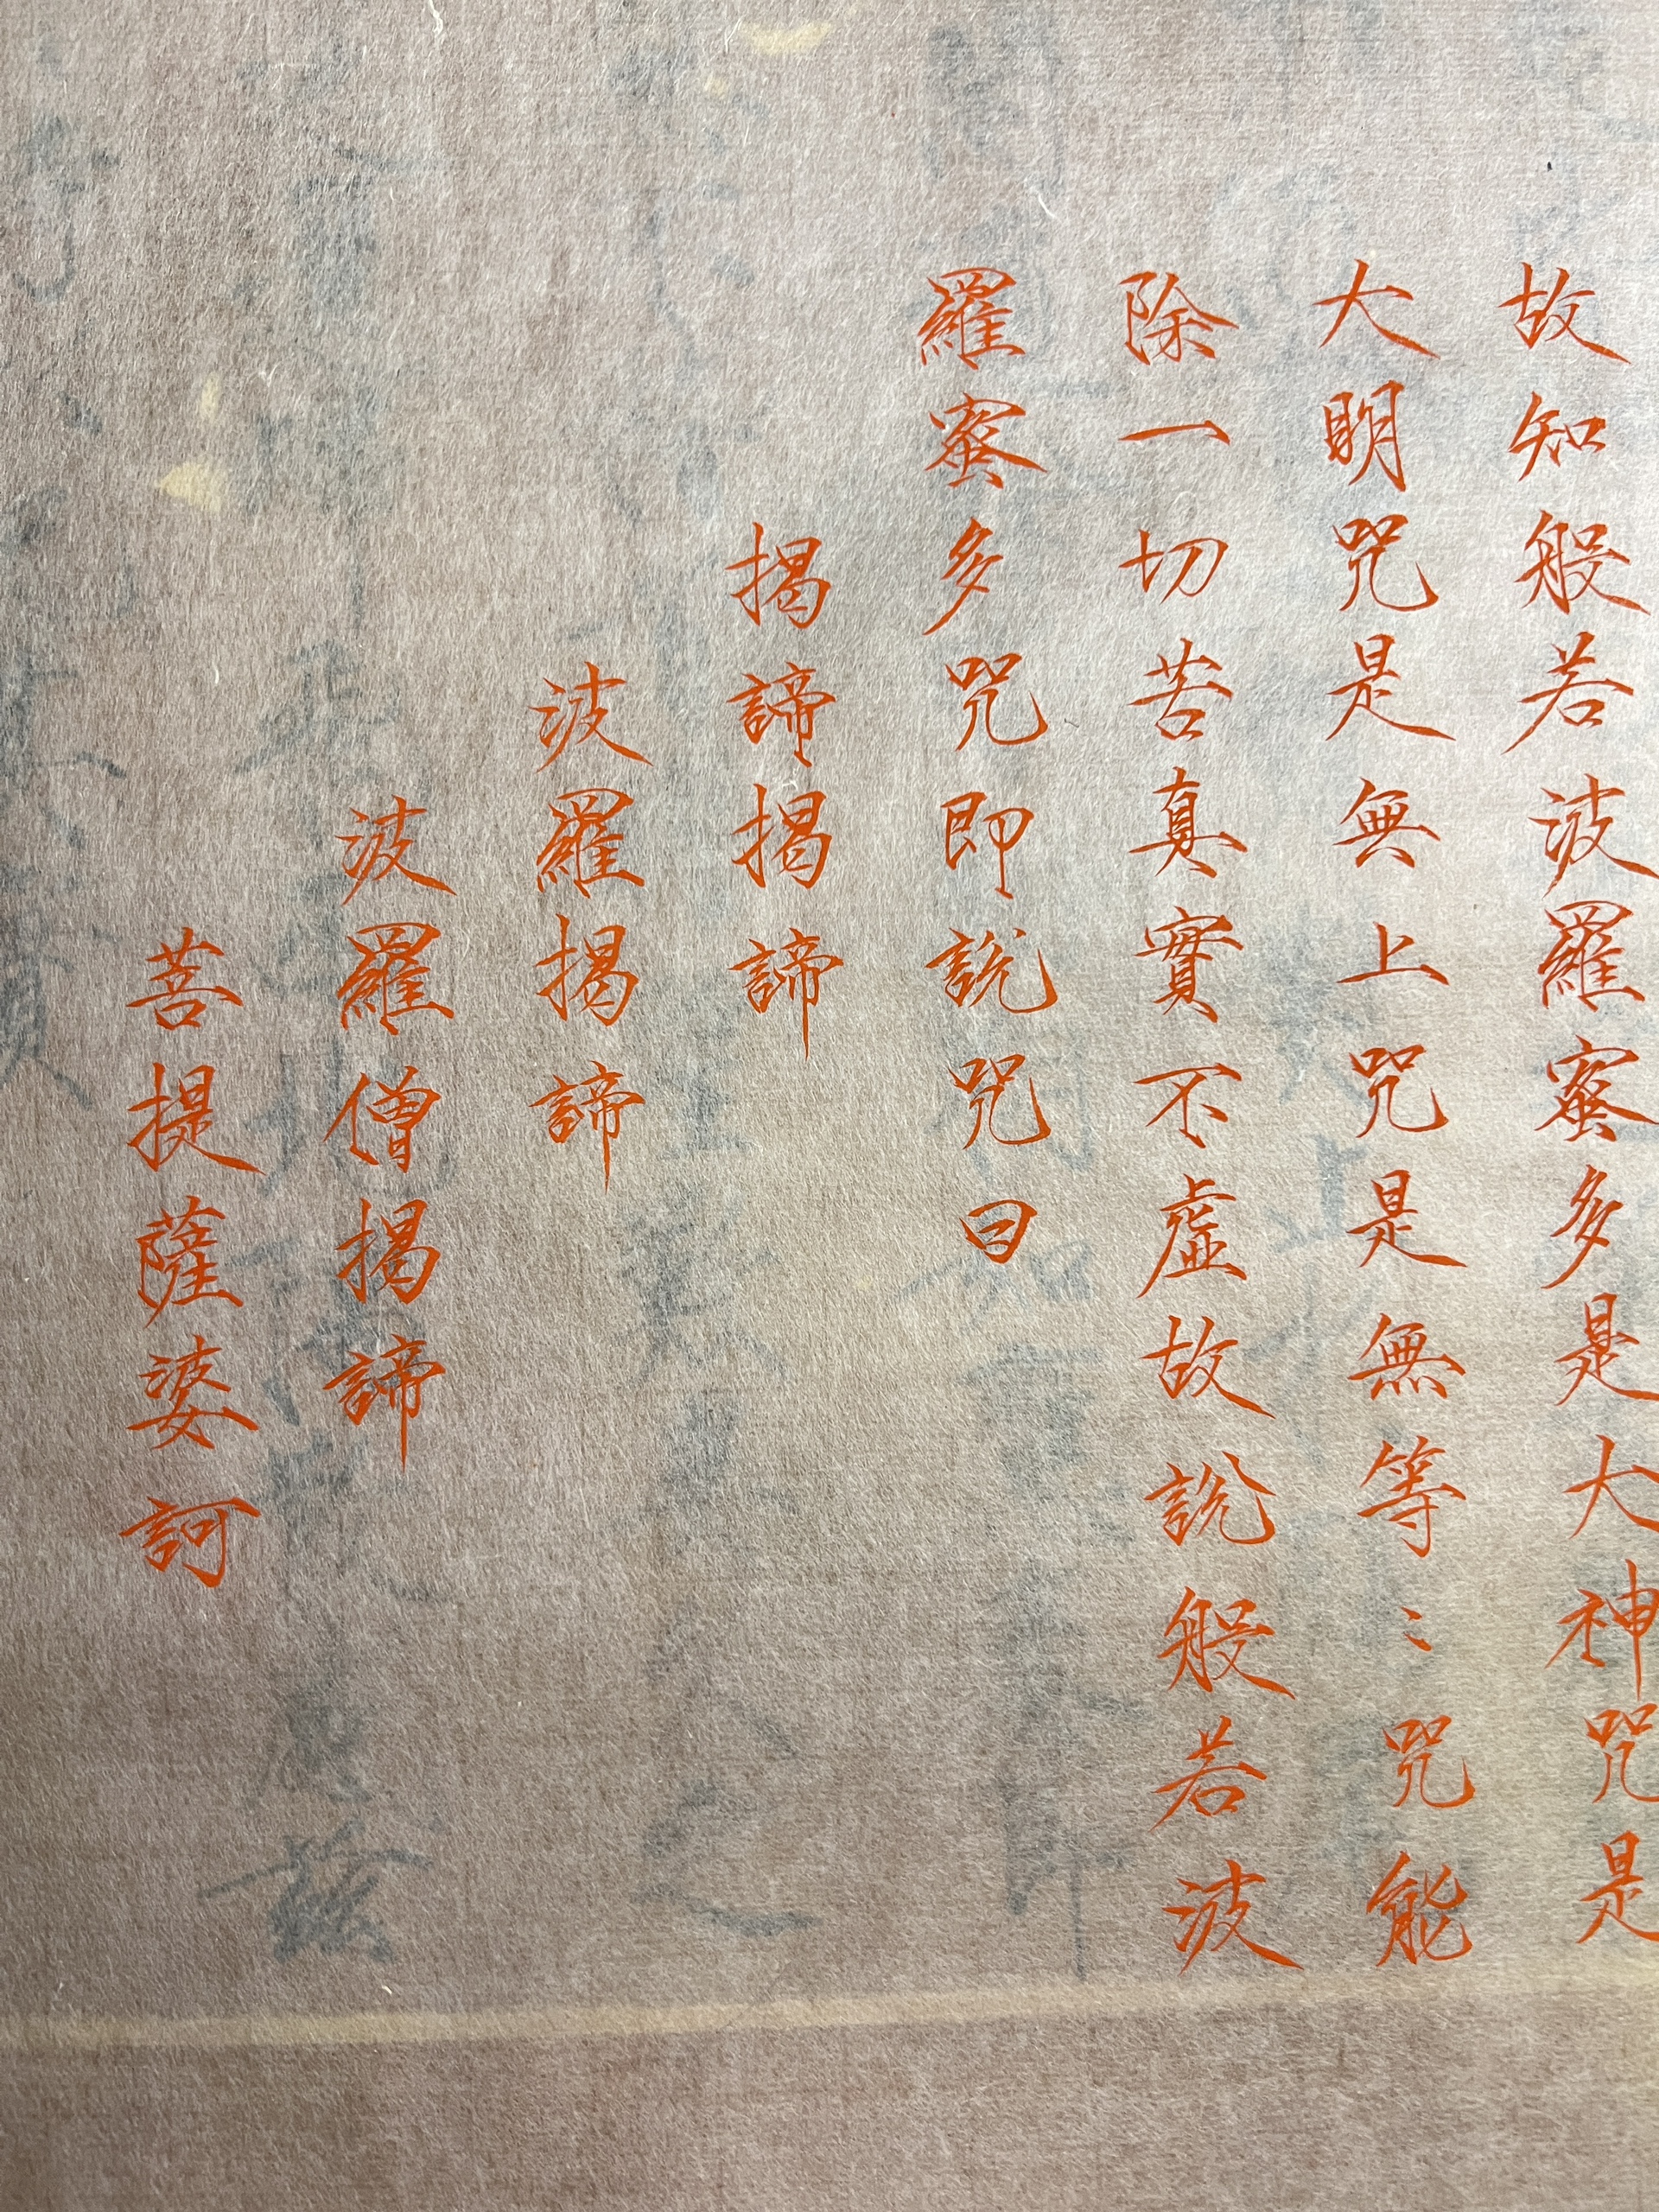 故知般若波羅蜜多是大神咒是
大明咒是無上咒是無等〻咒能
除一切苦真實不虛故說般若波
羅蜜多咒即說咒曰
揭諦揭諦
波羅揭諦
波羅僧揭諦
菩提薩婆訶